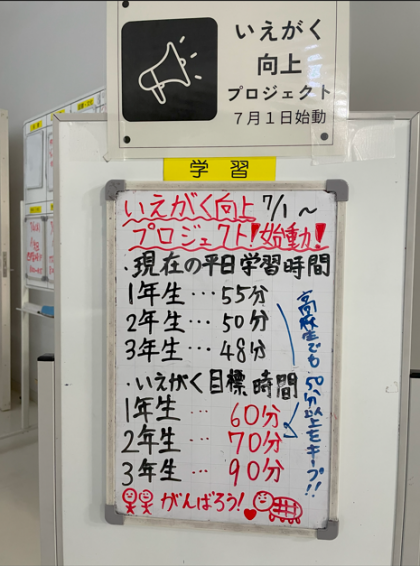 いえがく
向上
プロジェクト
7月1日始動
学習
いえがく向上 7/1～
プロジェクト!始動!
・現在の平日学習時間
1年生…55分
2年生…50分
3年生…48分
・いえがく目標時間
1年生…60分
2年生…70分
3年生…90分
高校生でも50分以上をキープ!!
がんばろう!